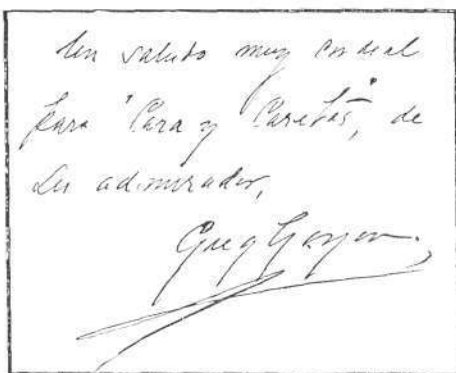 Un saludo muy cordial
para "Cara y Caretas", de
su admirador,